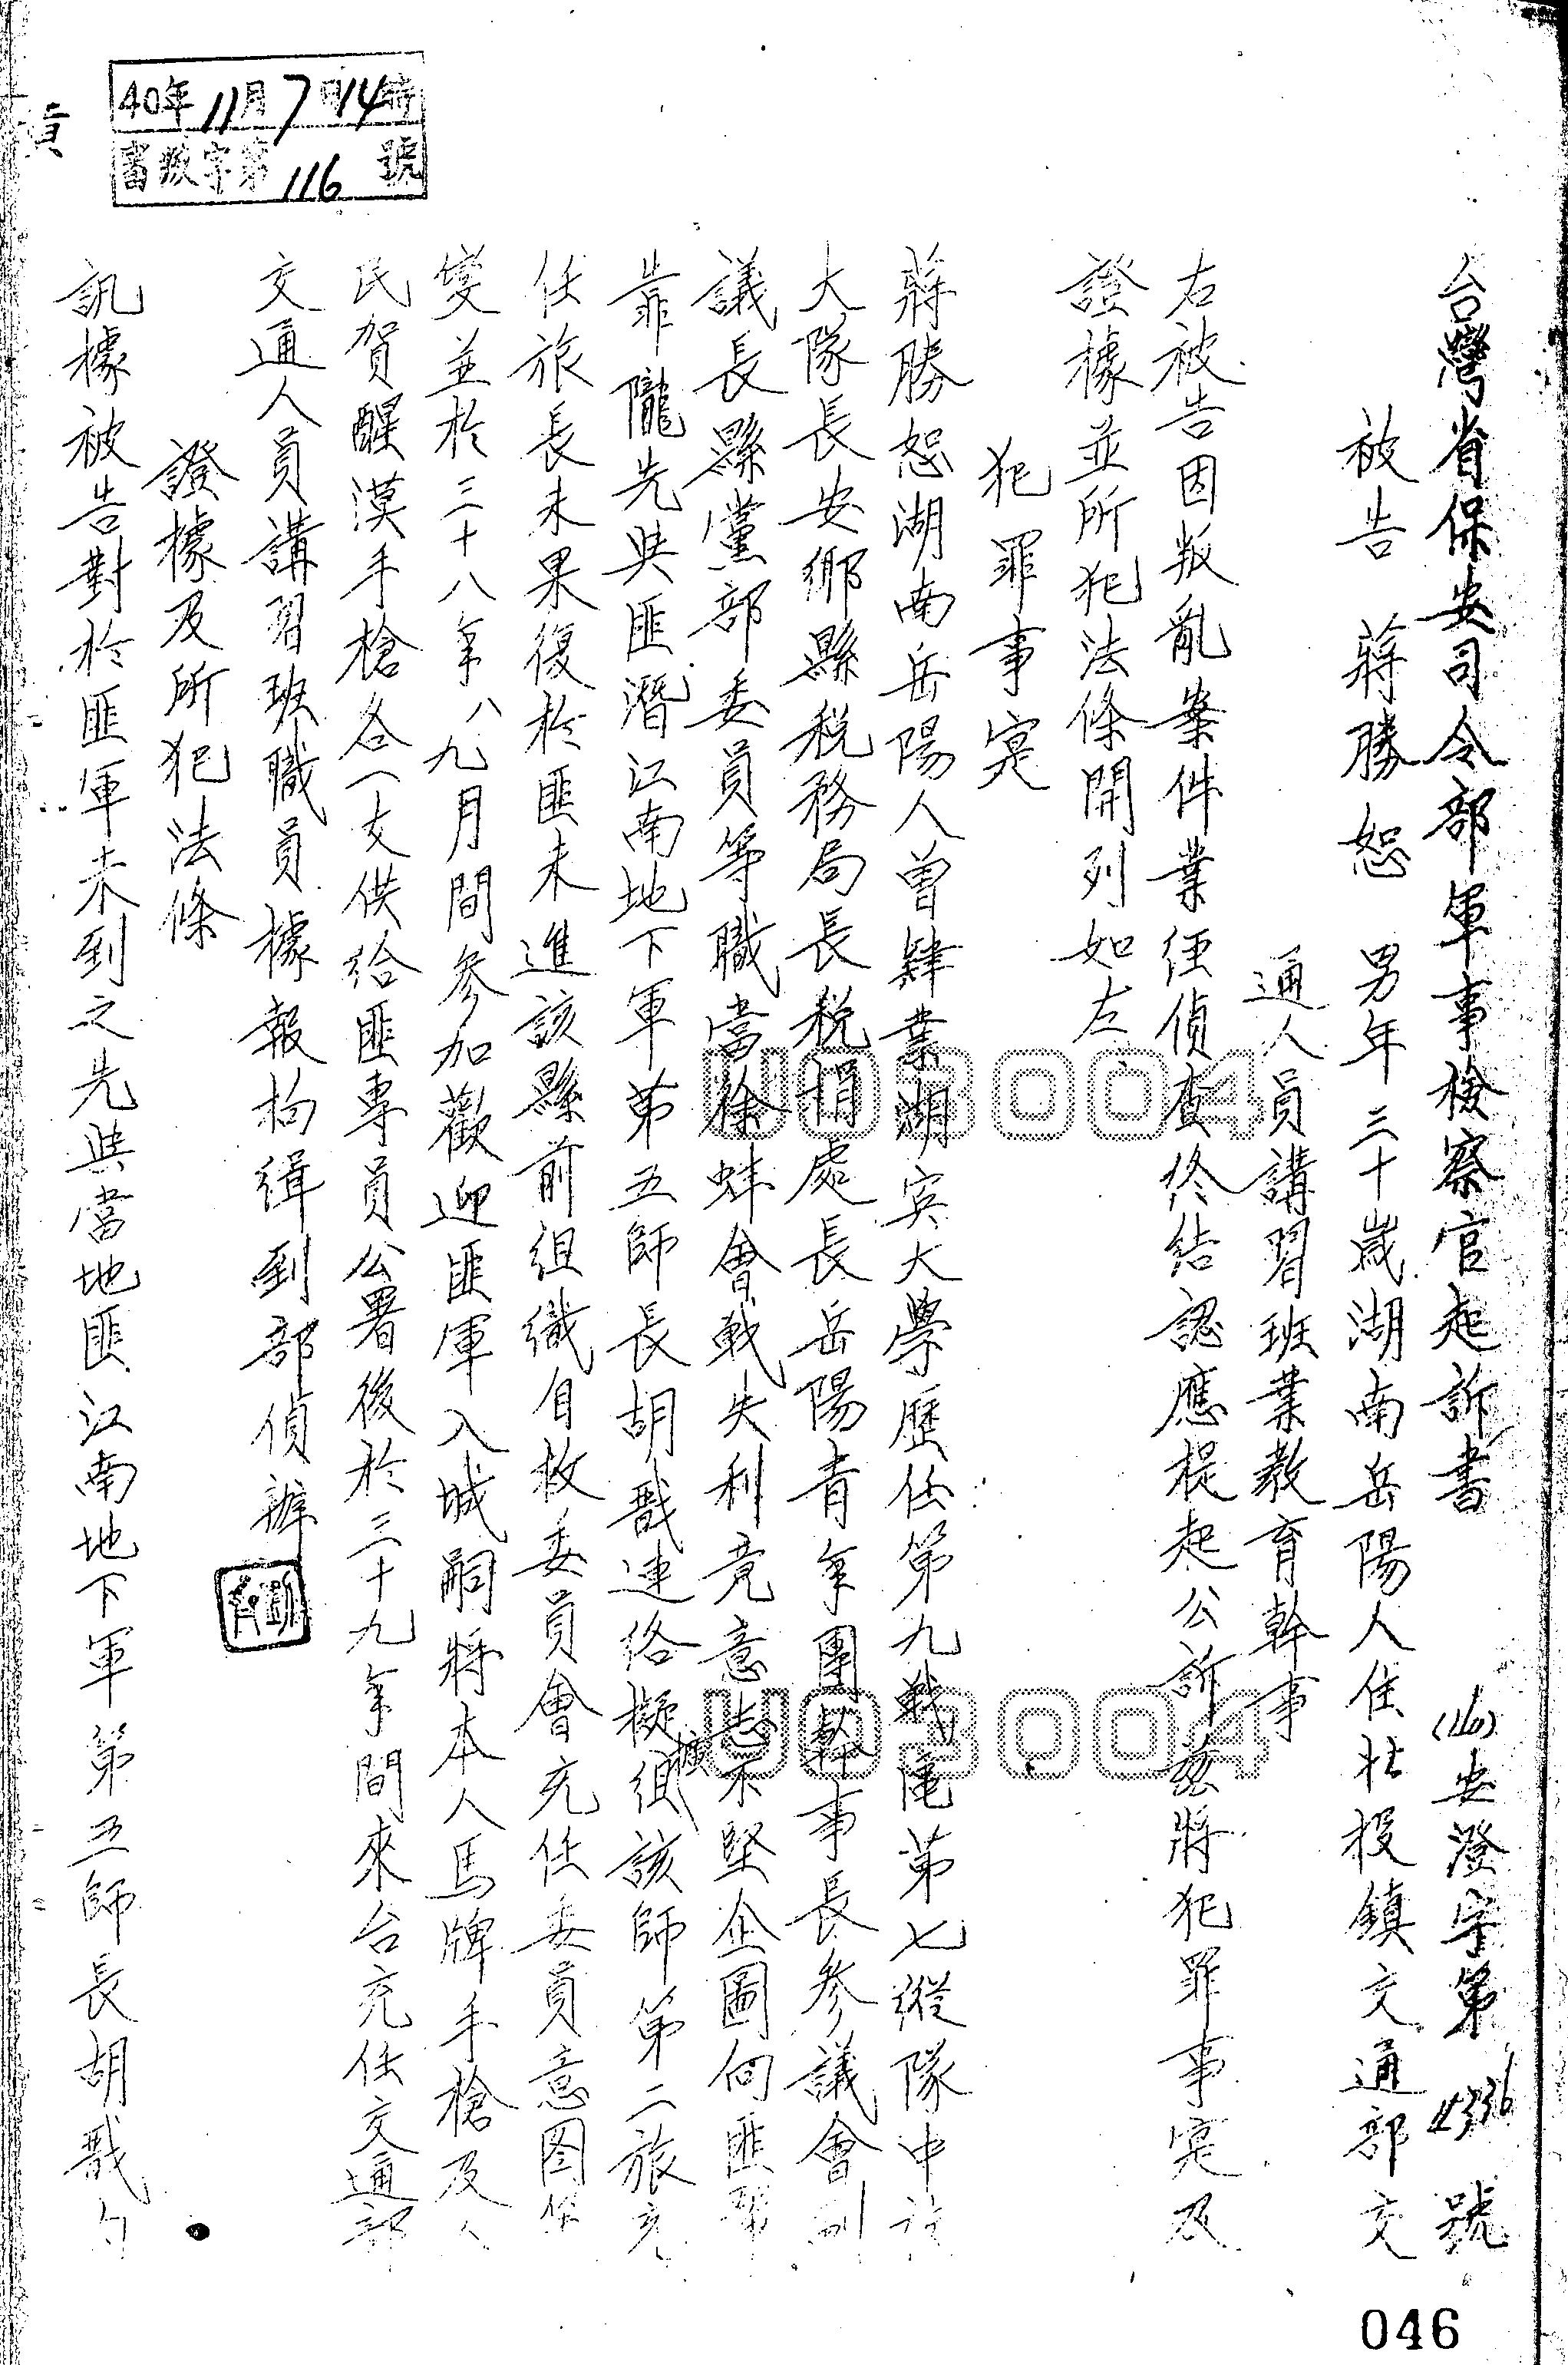 40年11月7日14時
審叛字第116號
台灣省保安司令部軍事檢察官起訴書 (40)安澄字第4336號
被告 蔣勝恕 男年三十歲湖南岳陽人住北投鎮交通部交
通人員講習班業教育幹事
右被告因叛亂案件業經偵查終結認應提起公訴茲將犯罪事實及
證據並所犯法條開列如左
犯罪事實
蔣勝恕湖南岳陽人曾肄業湖賓大學歷任第九戰區第七縱隊中
大隊長安鄉縣稅務局長稅捐處長岳陽青年團幹事長參議會副
議長縣黨部委員等職當徐蚌會戰失利竟意志不堅企圖向匪幫
靠隴先與匪潛江南地下軍第五師長胡戡連絡擬組織該師第二旅充
任旅長未果復於匪未進該縣前組織自救委員會充任委員意图
變並於三十八年八九月間參加歡迎匪軍入城嗣將本人馬牌手槍及人
民賀醒漠手槍各一支供給匪專員公署後於三十九年間來台充任交通部
交通人員講習班職員據報拘緝到部偵辦
證據及所犯法條
訊據被告對於匪軍未到之先與當地匪江南地下軍第五師長胡戡勾
U03004
U03004
046